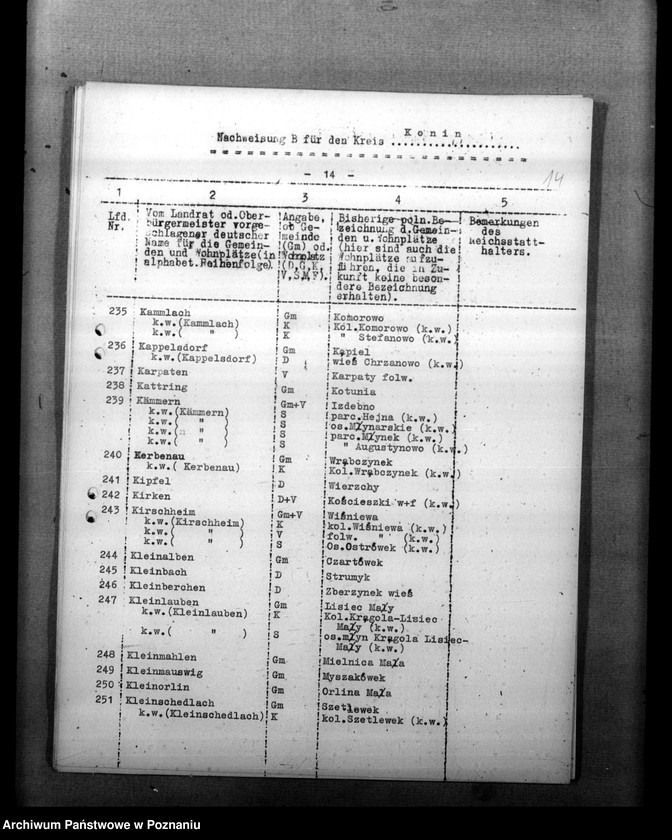 Nachweisung B für den Kreis Konin
- 14 -
14
1 2 3 4 5
Lfd. Nr. Vom Landrat od. Ober- Angabe, Bisherige poln. Be- Bemerkungen
bürgermeister vorge- ob Ge- zeichnung d. Gemein- des
schlagener deutscher meinde den u. Wohnplätze Reichsstatt-
Name für die Gemein- (Gm) od. (hier sind auch die halters.
den und Wohnplätze (in Wohnplatz Wohnplätze aufzu-
alphabet. Reihenfolge). (D,G,K, führen, die in Zu-
V,S,M,F). kunft keine beson-
dere Bezeichnung
erhalten).
235 Kammlach Gm Komorowo
k.w. (Kammlach) K Kol. Komorowo (k.w.)
k.w. ( " ) K " Stefanowo (k.w.)
236 Kappelsdorf Gm Kąpiel
k.w. (Kappelsdorf) D wieś Chrzanowo (k.w.)
237 Karpaten V Karpaty folw.
238 Kattring Gm Kotunia
239 Kämmern Gm+V Izdebno
k.w. (Kämmern) S parc. Hejna (k.w.)
k.w. ( " ) S os. Młynarskie (k.w.)
k.w. ( " ) S parc. Młynek (k.w.)
k.w. ( " ) S " Augustynowo (k.w.)
240 Kerbenau Gm Wrąbczynek
k.w. ( Kerbenau) K Kol. Wrąbczynek (k.w.)
241 Kipfel D Wierzchy
242 Kirken D+V Kościeszki w+f (k.w.)
243 Kirschheim Gm+V Wiśniewa
k.w. (Kirschheim) K kol. Wiśniewa (k.w.)
k.w. ( " ) V folw. " (k.w.)
k.w. ( " ) S Os. Ostrówek (k.w.)
244 Kleinalben Gm Czartówek
245 Kleinbach D Strumyk
246 Kleinberchen D Zberzynek wieś
247 Kleinlauben Gm Lisiec Mały
k.w. (Kleinlauben) K Kol. Krągola-Lisiec
Mały (k.w.)
k.w. ( " ) S os. młyn Krągola Lisiec-
Mały (k.w.)
248 Kleinmahlen Gm Mielnica Mała
249 Kleinmauswig Gm Myszakówek
250 Kleinorlin Gm Orlina Mała
251 Kleinschedlach Gm Szetlewek
k.w. (Kleinschedlach) K kol. Szetlewek (k.w.)
Archiwum Państwowe w Poznaniu